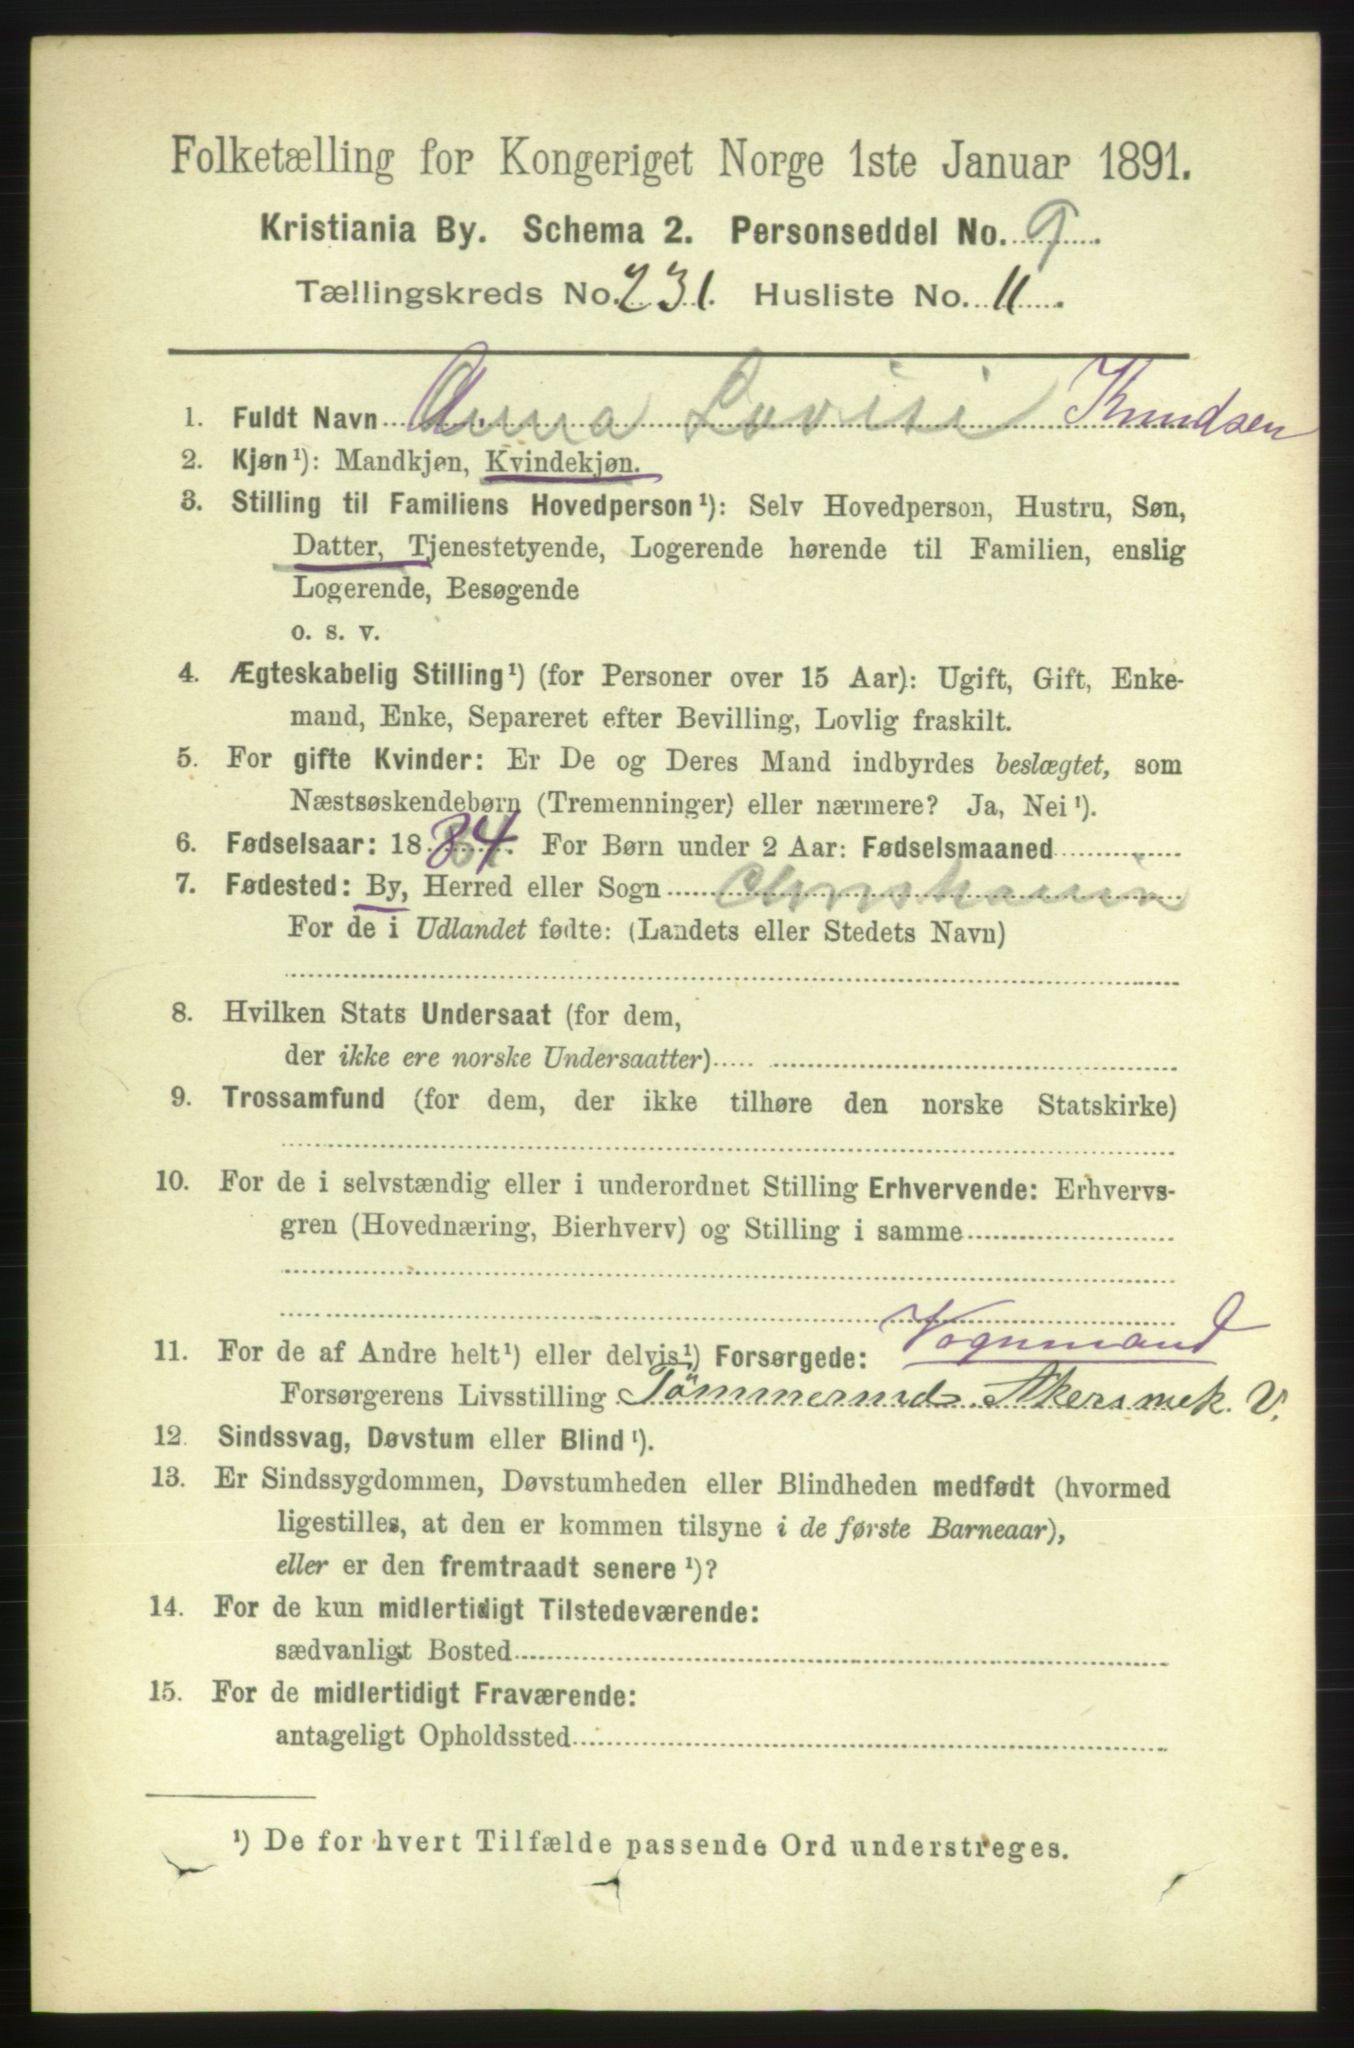 Folketælling for Kongeriget Norge 1ste Januar 1891.
Kristiania By. Schema 2. Personseddel No. 9
Tællingskreds No. 231. Husliste No. 11.
1. Fuldt Navn Anna Lovisi Knudsen
2. Kjøn¹): Mandkjøn, Kvindekjøn.
3. Stilling til Familiens Hovedperson¹): Selv Hovedperson, Hustru, Søn,
Datter, Tjenestetyende, Logerende hørende til Familien, enslig
Logerende, Besøgende
o. s. v.
4. Ægteskabelig Stilling¹) (for Personer over 15 Aar): Ugift, Gift, Enke-
mand, Enke, Separeret efter Bevilling, Lovlig fraskilt.
5. For gifte Kvinder: Er De og Deres Mand indbyrdes beslægtet, som
Næstsøskendebørn (Tremenninger) eller nærmere? Ja, Nei¹).
6. Fødselsaar: 1884. For Børn under 2 Aar: Fødselsmaaned
7. Fødested: By, Herred eller Sogn Christiania
For de i Udlandet fødte: (Landets eller Stedets Navn)
8. Hvilken Stats Undersaat (for dem,
der ikke ere norske Undersaatter)
9. Trossamfund (for dem, der ikke tilhøre den norske Statskirke)
10. For de i selvstændig eller i underordnet Stilling Erhvervende: Erhvervs-
gren (Hovednæring, Bierhverv) og Stilling i samme
Vognmand
11. For de af Andre helt¹) eller delvis¹) Forsørgede:
Forsørgerens Livsstilling Tømmermd. Akers mek. V.
12. Sindssvag, Døvstum eller Blind¹).
13. Er Sindssygdommen, Døvstumheden eller Blindheden medfødt (hvormed
ligestilles, at den er kommen tilsyne i de første Barneaar),
eller er den fremtraadt senere¹)?
14. For de kun midlertidigt Tilstedeværende:
sædvanligt Bosted
15. For de midlertidigt Fraværende:
antageligt Opholdssted
¹) De for hvert Tilfælde passende Ord understreges.